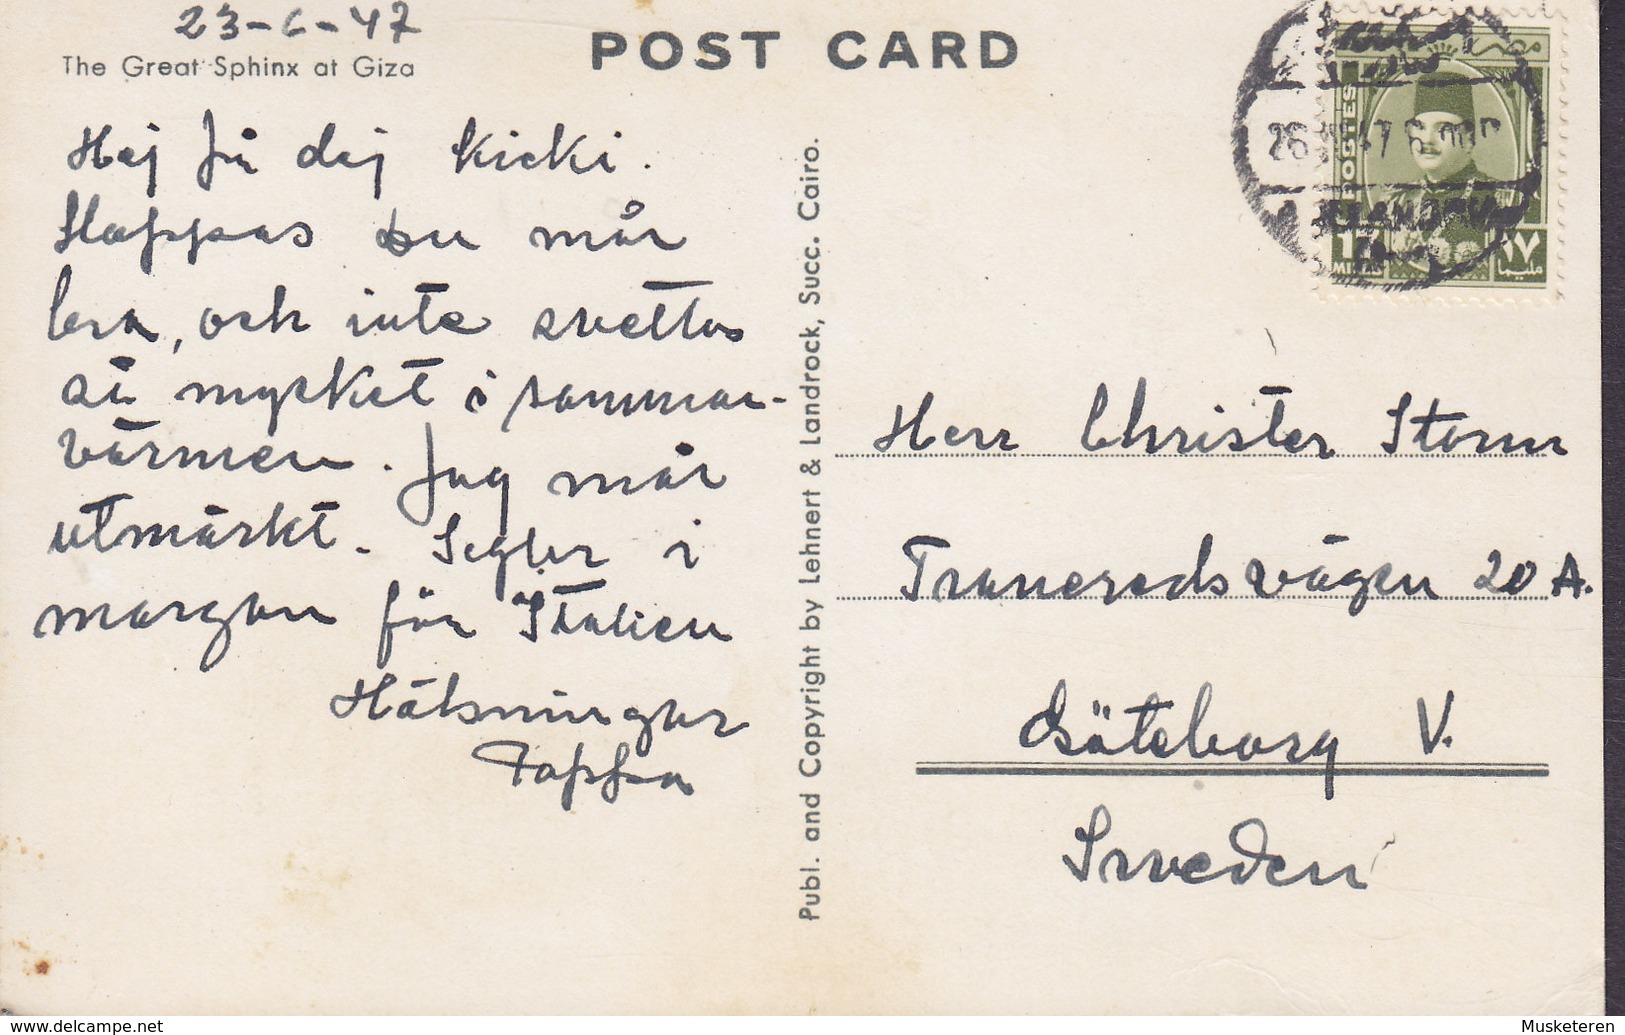 23-6-47
The Great Sphinx at Giza
POST CARD
Hej på dej Kicki.
Hoppas du mår
bra, och inte svettas
så mycket i sommar-
värmen. Jag mår
utmärkt. Seglar i
morgon för Italien
Hälsningar
Pappa
Publ. and Copyright by Lehnert & Landrock, Succ. Cairo.
POSTES
17
MILLS
١٧
26 47 6
Herr Christer Storm
Traneredsvägen 20 A.
Göteborg V.
Sweden
www.delcampe.net
Musketeren